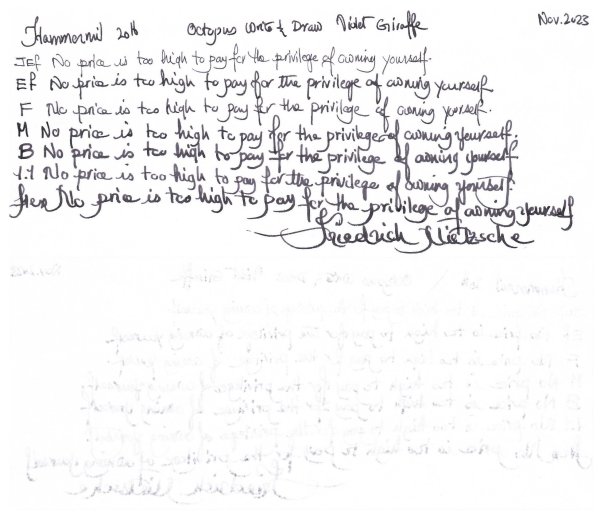 Hammermil 20lb Octopus Write & Draw Violet Giraffe Nov. 2023
JEf No price is too high to pay for the privilege of owning yourself.
Ef No price is too high to pay for the privilege of owning yourself
F No price is too high to pay for the privilege of owning yourself.
M No price is too high to pay for the privilege of owning yourself.
B No price is too high to pay for the privilege of owning yourself
1.1 No price is too high to pay for the privilege of owning yourself.
flex No price is too high to pay for the privilege of owning yourself
Friedrich Nietzsche